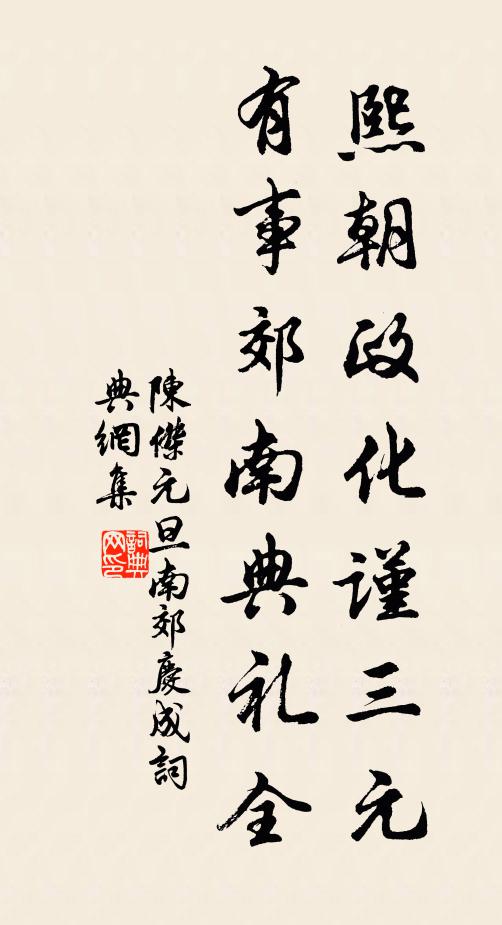 熙朝政化谨三元
有事郊南典礼全
陳傑元旦南郊慶成詞
典網集
詞典网印